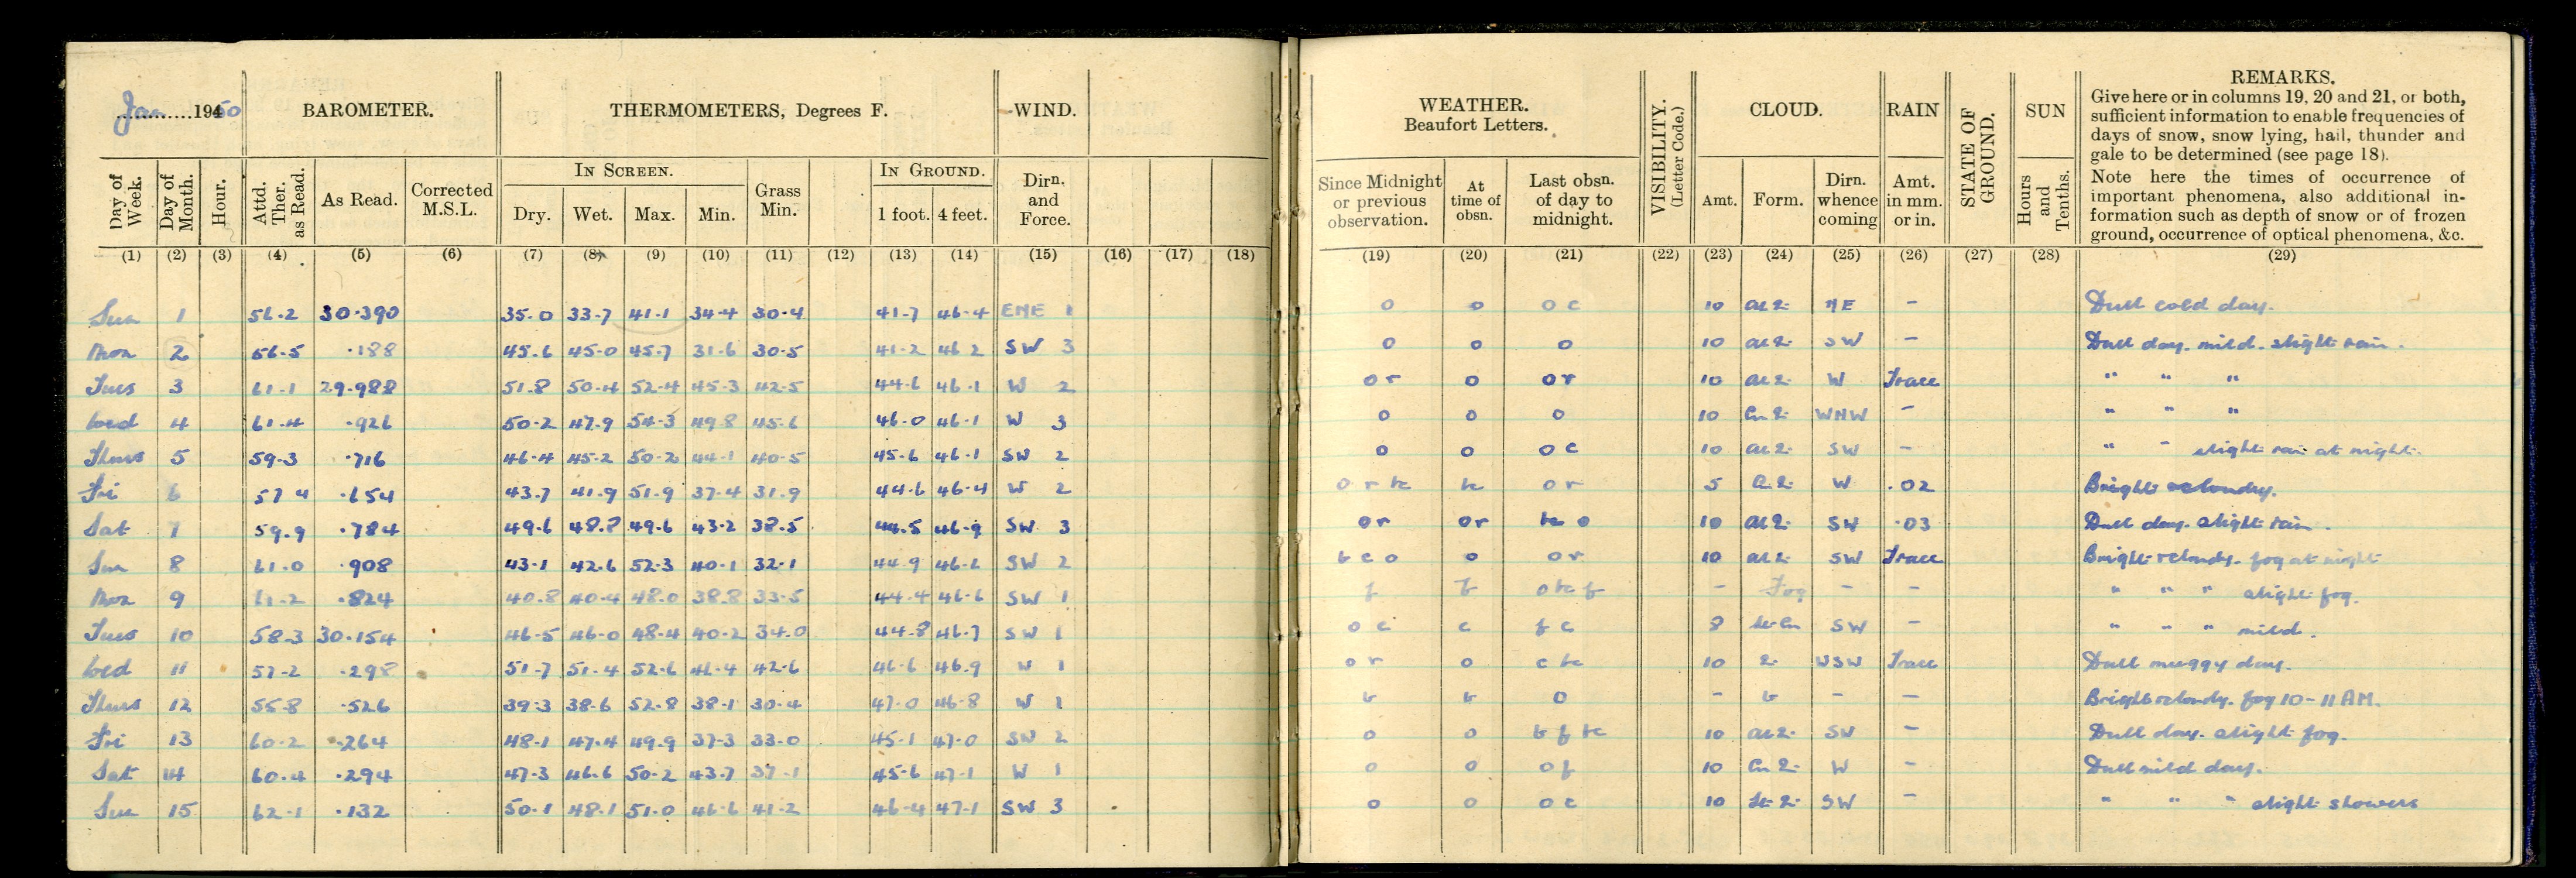 Jan 1950
BAROMETER.
THERMOMETERS, Degrees F.
WIND.
WEATHER.
Beaufort Letters.
VISIBILITY.
(Letter Code.)
CLOUD.
RAIN
STATE OF
GROUND.
SUN
REMARKS.
Give here or in columns 19, 20 and 21, or both,
sufficient information to enable frequencies of
days of snow, snow lying, hail, thunder and
gale to be determined (see page 18).
Note here the times of occurrence of
important phenomena, also additional in-
formation such as depth of snow or of frozen
ground, occurrence of optical phenomena, &c.
Day of Week.
Day of Month.
Hour.
Attd. Ther. as Read.
As Read.
Corrected M.S.L.
IN SCREEN.
Dry. Wet. Max. Min.
Grass Min.
IN GROUND.
1 foot. 4 feet.
Dirn. and Force.
Since Midnight or previous observation.
At time of obsn.
Last obsn. of day to midnight.
Amt. Form.
Dirn. whence coming
Amt. in mm. or in.
Hours and Tenths.
(1) (2) (3) (4) (5) (6) (7) (8) (9) (10) (11) (12) (13) (14) (15) (16) (17) (18) (19) (20) (21) (22) (23) (24) (25) (26) (27) (28) (29)
Sun 1 56.2 30.390 35.0 33.7 41.1 34.4 30.4 41.7 46.4 ENE 1 o o o c 10 NE - Dull cold day.
Mon 2 56.5 .188 45.6 45.0 45.7 31.6 30.5 41.2 46.2 SW 3 o o o 10 SW - Dull day. mild. slight rain.
Tues 3 61.1 29.988 51.8 50.4 52.4 45.3 42.5 44.6 46.1 W 2 o r o o r 10 W Trace " " "
Wed 4 61.4 .926 50.2 47.9 54.3 49.8 45.6 46.0 46.1 W 3 o o o 10 WNW - " " "
Thurs 5 59.3 .716 46.4 45.2 50.2 44.1 40.5 45.6 46.1 SW 2 o o o c 10 SW - " " slight rain at night.
Fri 6 57.4 .654 43.7 41.9 51.9 37.4 31.9 44.6 46.4 W 2 o r bc bc o r 5 W .02 Bright & cloudy.
Sat 7 59.9 .784 49.6 48.8 49.6 43.2 38.5 44.5 46.9 SW 3 o r o r bc o 10 SW .03 Dull day. slight rain.
Sun 8 61.0 .908 43.1 42.6 52.3 40.1 32.1 44.9 46.2 SW 2 b c o o o r 10 SW Trace Bright & cloudy. fog at night
Mon 9 61.2 .824 40.8 40.4 48.0 38.8 33.5 44.4 46.6 SW 1 f f o bc f - Fog - - " " " slight fog.
Tues 10 58.3 30.154 46.5 46.0 48.4 40.2 34.0 44.8 46.7 SW 1 o c c f c 8 SW - " " " mild.
Wed 11 57.2 .298 51.7 51.4 52.6 46.4 42.6 46.6 46.9 W 1 o r o c bc 10 WSW Trace Dull muggy day.
Thurs 12 55.8 .526 39.3 38.6 52.8 38.1 30.4 47.0 46.8 W 1 b b o - b - - Bright & cloudy. fog 10-11 AM.
Fri 13 60.2 .264 48.1 47.4 49.9 37.3 33.0 45.1 47.0 SW 2 o o b f bc 10 SW - Dull day. slight fog.
Sat 14 60.4 .294 47.3 46.6 50.2 43.7 37.1 45.6 47.1 W 1 o o o f 10 W - Dull mild day.
Sun 15 62.1 .132 50.1 48.1 51.0 46.6 41.2 46.4 47.1 SW 3 o o o c 10 SW - " " " slight showers